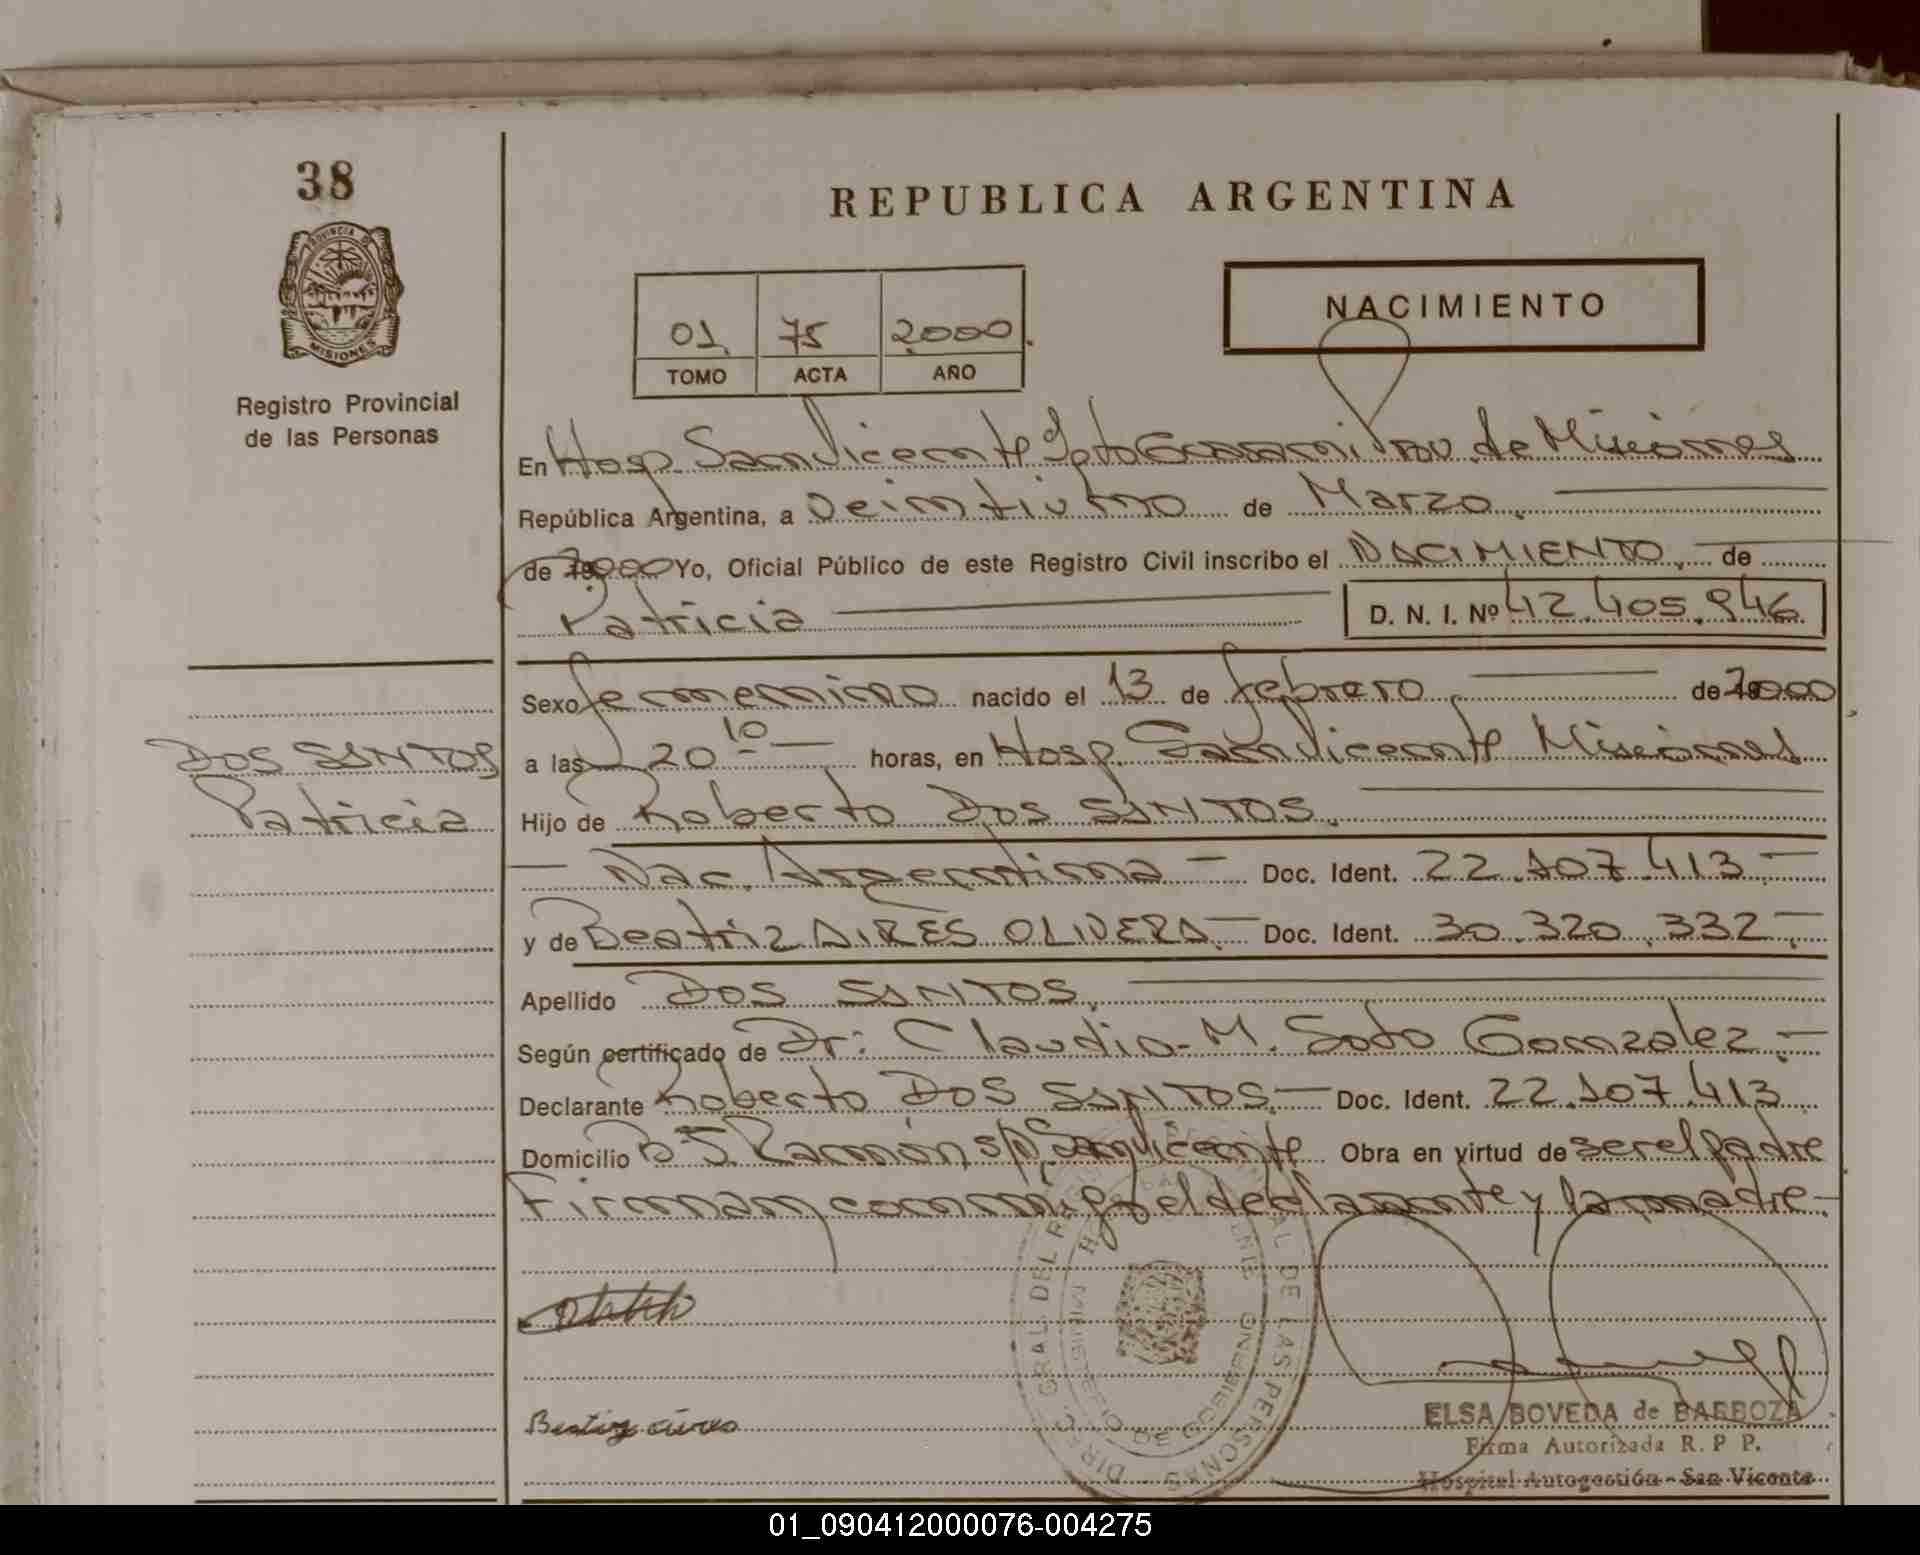 38
REPUBLICA ARGENTINA
PROVINCIA DE
MISIONES
Registro Provincial
de las Personas
NACIMIENTO
01. 75 2000.
TOMO ACTA AÑO
En Hosp. San Vicente Dpto Guarani Prov. de Misiones
República Argentina, a veintiuno de Marzo.
de 2000 Yo, Oficial Público de este Registro Civil inscribo el NACIMIENTO. de
Patricia D. N. I. Nº 42.405.946.
Sexo femenino nacido el 13 de febrero de 2000
DOS SANTOS
Patricia
a las 20 10 horas, en Hosp. San Vicente Misiones
Hijo de Roberto DOS SANTOS.
— Nac. Argentina — Doc. Ident. 22.107.413 —
y de Beatriz AIRES OLIVERA. — Doc. Ident. 30.320.332. —
Apellido DOS SANTOS.
Según certificado de Dr: Claudio M. Soto Gonzalez. —
Declarante Roberto DOS SANTOS. — Doc. Ident. 22.107.413
Domicilio Bº S. Ramón s/N San Vicente Obra en virtud de ser el padre
Firman conmigo el declarante y la madre
Beatriz aires
ELSA BOVEDA de BARBOZA
Firma Autorizada R. P P.
Hospital Autogestión - San Vicente
01_090412000076-004275